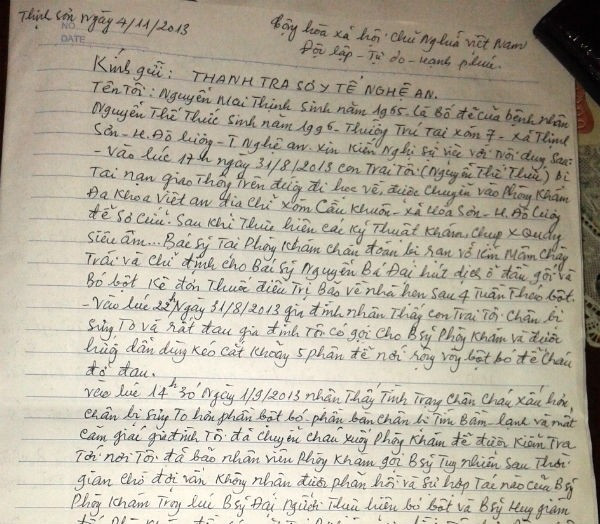 Thịnh Sơn Ngày 4/11/2013
NO.
DATE
Cộng hòa xã hội chủ Nghĩa việt Nam
Độc lập - Tự do - Hạnh phúc.
Kính gửi: THANH TRA SỞ Y TẾ NGHỆ AN.
Tên Tôi: Nguyễn Mai Thịnh Sinh năm 1965. là Bố đẻ của bệnh nhân
Nguyễn Thế Thức Sinh năm 1996. Thường Trú Tại xóm 7 - xã Thịnh
Sơn - H. Đô lương - T Nghệ an. xin Kiến Nghị Sự việc với nội dung Sau:
- Vào lúc 17h ngày 31/8/2013 con Trai Tôi (Nguyễn Thế Thức) bị
Tai nạn giao Thông Trên đường đi học về, được chuyển vào Phòng Khám
Đa Khoa Việt an địa chỉ xóm Cầu Khuôn - xã Hòa Sơn - H. Đô lương
để Sơ cứu. Sau Khi Thực hiện các Kỹ Thuật Khám, chụp X Quang
Siêu âm... Bác Sỹ Tại Phòng Khám chẩn đoán bị rạn vỡ Kín Mâm chày
Trái và chỉ định cho Bác Sỹ Nguyễn Bá Đại hút dịch ở đầu gối và
Bó bột Kê đơn Thuốc điều Trị Bảo về nhà hẹn Sau 4 Tuần Tháo bột.
- Vào lúc 22h Ngày 31/8/2013 gia đình nhận Thấy con Trai Tôi. Chân bị
Sưng To và rất đau gia đình Tôi có gọi cho B Sỹ Phòng Khám và được
hướng dẫn dùng Kéo cắt Khoảng 5 phân để nới rộng vòng bột bó để cháu
đỡ đau.
Vào lúc 14h 30 Ngày 1/9/2013 nhận Thấy Tình Trạng Chân Cháu xấu hơn,
chân bị Sưng To hơn phần bột bó. phần bàn chân bị Tím Bầm - lạnh và mất
cảm giác gia đình Tôi đã chuyển cháu xuống Phòng Khám để được Kiểm Tra
Tới nơi Tôi đã báo nhân viên Phòng Khám gọi B Sỹ Tuy nhiên Sau Thời
gian chờ đợi vẫn Không nhận được phản hồi và Sự hợp Tác nào của B Sỹ
Phòng Khám Trong lúc B Sỹ Đại người Thực hiện bó bột và B Sỹ Huy giám